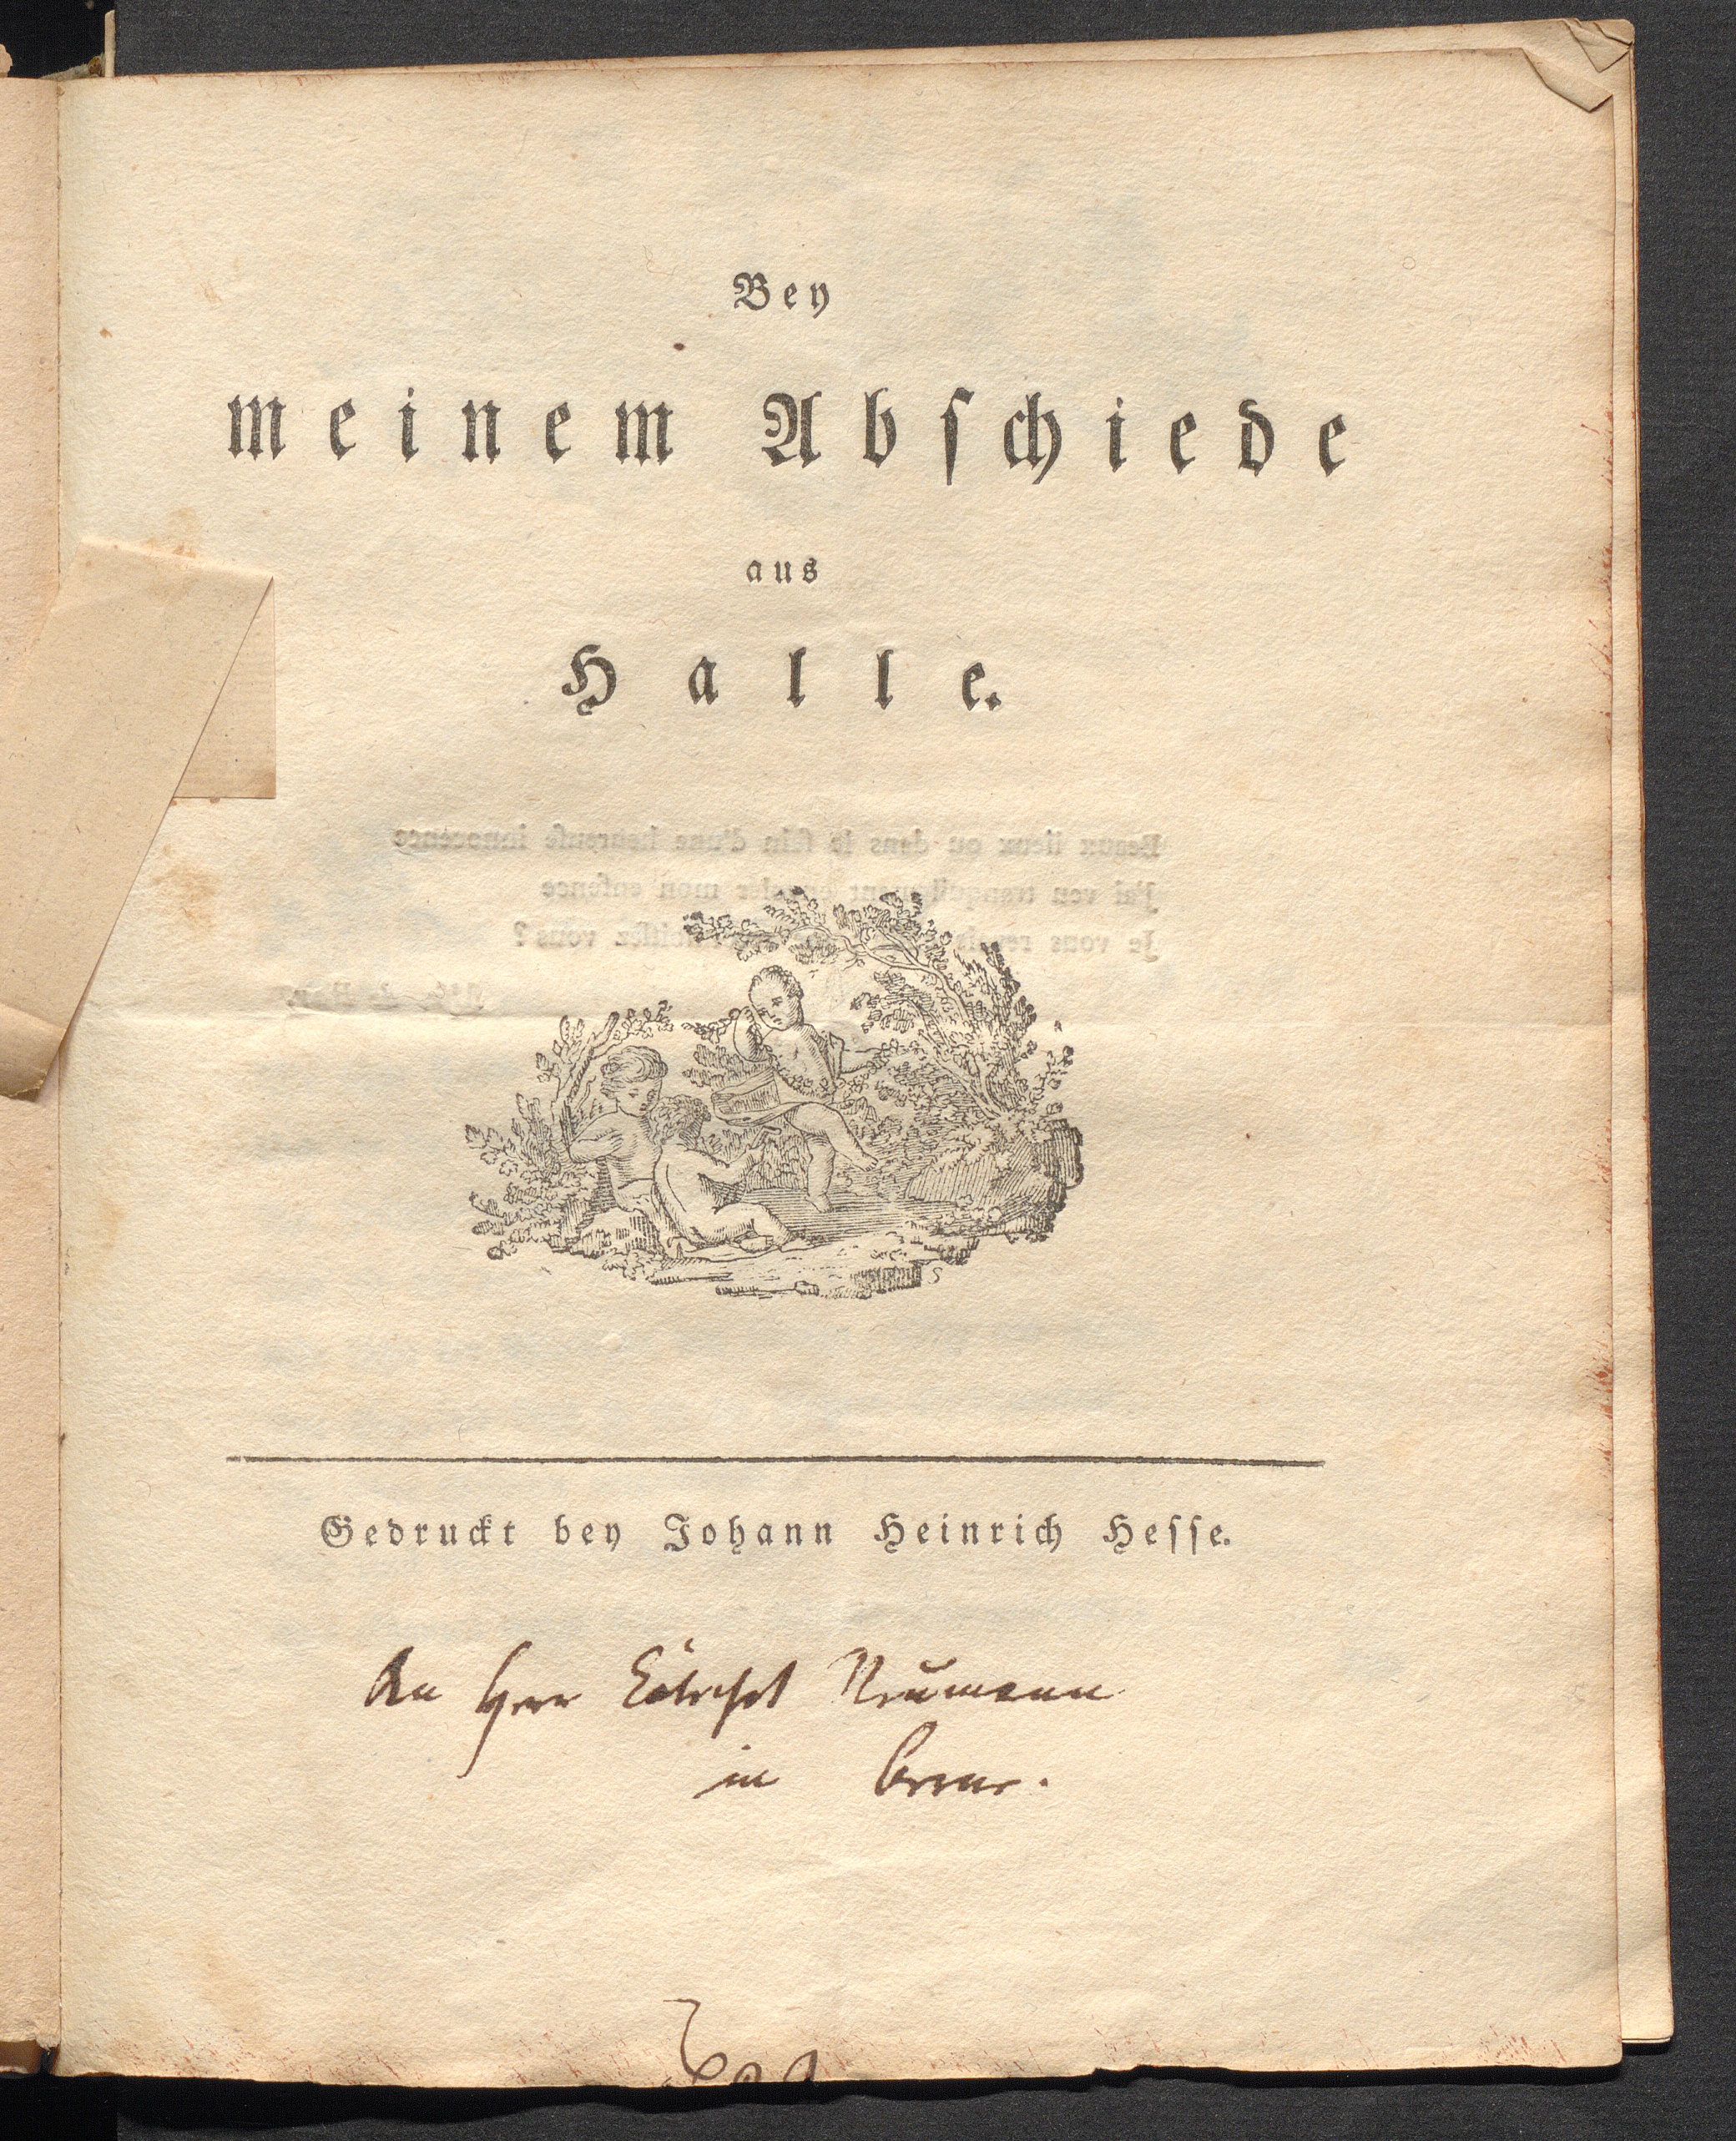 Bey
meinem Abſchiede
aus
Halle.
Gedruckt bey Johann Heinrich Heſſe.
An Herr Neumann
in